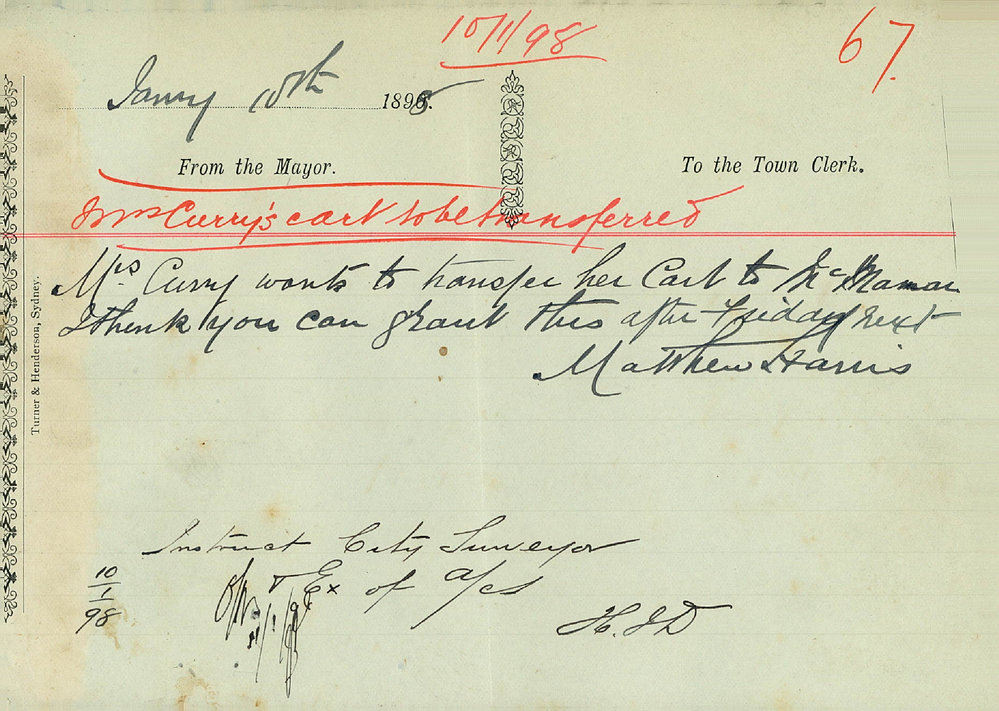 10/1/98
67.
Jany 10th 1898.
From the Mayor. To the Town Clerk.
Mrs Curry's cart to be transferred
Mrs Curry wants to transfer her Cart to McMamar
I think you can grant this after Friday next
Matthew Harris
Turner & Henderson, Sydney.
Instruct City Surveyor
& Ex of a/cs
10/1/98
H.J.D